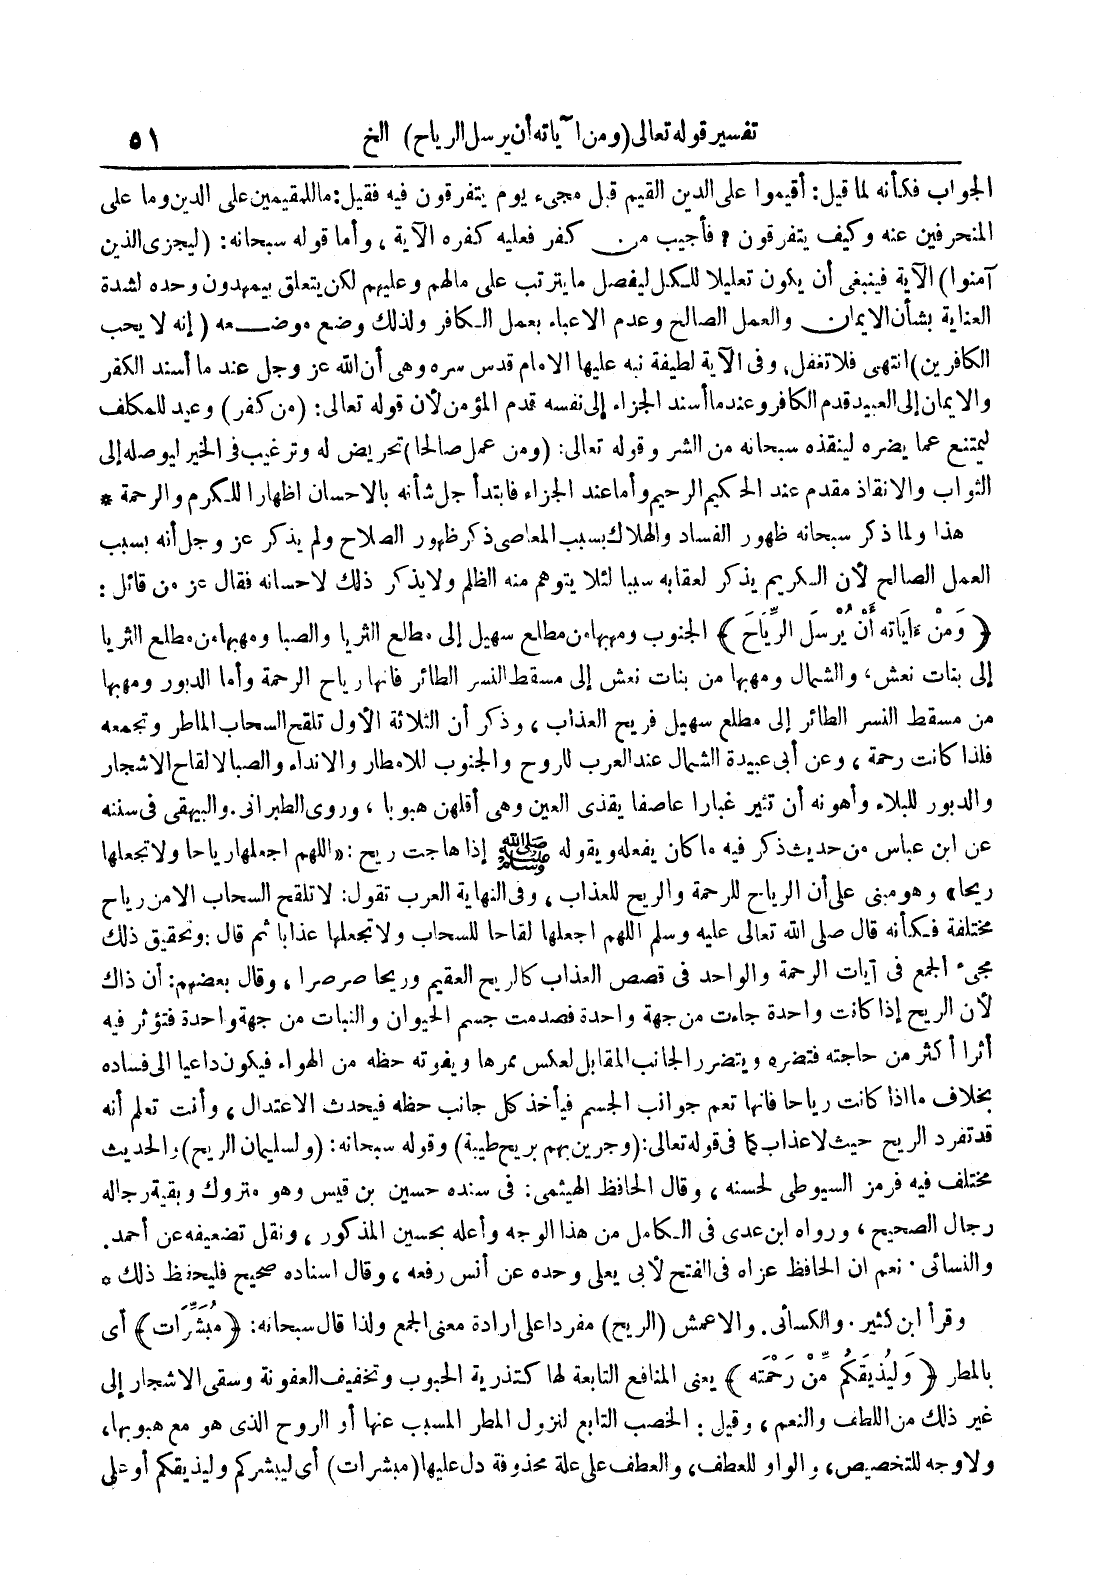 تفسير قوله تعالى (ومن آياته أن يرسل الرياح) الخ ٥١
الجواب فكأنه لما قيل: أقيموا على الدين القيم قبل مجيء يوم يتفرقون فيه فقيل: ما للمقيمين على الدين وما على
المنحرفين عنه وكيف يتفرقون؟ فأجيب من كفر فعليه كفره الآية، وأما قوله سبحانه: (ليجزى الذين
آمنوا) الآية فينبغى أن يكون تعليلا للكل ليفصل ما يترتب على مالهم وعليهم لكن يتعلق بيمهدون وحده لشدة
العناية بشأن الايمان والعمل الصالح وعدم الاعباء بعمل الكافر ولذلك وضع موضعه (إنه لا يحب
الكافرين) انتهى فلا تغفل، وفى الآية لطيفة نبه عليها الامام قدس سره وهى أن الله عز وجل عند ما أسند الكفر
والايمان إلى العبيد قدم الكافر وعند ما أسند الجزاء إلى نفسه قدم المؤمن لأن قوله تعالى: (من كفر) وعيد للمكلف
ليمتنع عما يضره لينقذه سبحانه من الشر وقوله تعالى: (ومن عمل صالحا) تحريض له وترغيب فى الخير ليوصله إلى
الثواب والانقاذ مقدم عند الحكيم الرحيم وأما عند الجزاء فابتدأ جل شأنه بالاحسان اظهارا للكرم والرحمة *
هذا ولما ذكر سبحانه ظهور الفساد والهلاك بسبب المعاصى ذكر ظهور الصلاح ولم يذكر عز وجل أنه بسبب
العمل الصالح لأن الكريم يذكر لعقابه سببا لئلا يتوهم منه الظلم ولا يذكر ذلك لاحسانه فقال عز من قائل:
﴿ وَمِنْ ءَايَاته أَنْ يُرْسلَ الرِّيَاحَ ﴾ الجنوب ومهبها من مطلع سهيل إلى مطلع الثريا والصبا ومهبها من مطلع الثريا
إلى بنات نعش، والشمال ومهبها من بنات نعش إلى مسقط النسر الطائر فانها رياح الرحمة وأما الدبور ومهبها
من مسقط النسر الطائر إلى مطلع سهيل فريح العذاب، وذكر أن الثلاثة الأول تلقح السحاب الماطر وتجمعه
فلذا كانت رحمة، وعن أبى عبيدة الشمال عند العرب للروح والجنوب للامطار والانداء والصبا لالقاح الاشجار
والدبور للبلاء وأهونه أن تثير غبارا عاصفا يقذى العين وهى أقلهن هبوبا، وروى الطبرانى. والبيهقى فى سننه
عن ابن عباس من حديث ذكر فيه ما كان يفعله ويقوله ﷺ إذا هاجت ريح: «اللهم اجعلها رياحا ولا تجعلها
ريحا» وهو مبنى على أن الرياح للرحمة والريح للعذاب، وفى النهاية العرب تقول: لا تلقح السحاب الا من رياح
مختلفة فكأنه قال صلى الله تعالى عليه وسلم اللهم اجعلها لقاحا للسحاب ولا تجعلها عذابا ثم قال: وتحقيق ذلك
مجىء الجمع فى آيات الرحمة والواحد فى قصص العذاب كالريح العقيم وريحا صرصرا، وقال بعضهم: أن ذاك
لأن الريح إذا كانت واحدة جاءت من جهة واحدة فصدمت جسم الحيوان والنبات من جهة واحدة فتؤثر فيه
أثرا أكثر من حاجته فتضره ويتضرر الجانب المقابل لعكس ممرها ويفوته حظه من الهواء فيكون داعيا الى فساده
بخلاف ما اذا كانت رياحا فانها تعم جوانب الجسم فيأخذ كل جانب حظه فيحدث الاعتدال، وأنت تعلم أنه
قد تفرد الريح حيث لا عذاب كما فى قوله تعالى: (وجرين بهم بريح طيبة) وقوله سبحانه: (ولسليمان الريح)، والحديث
مختلف فيه فرمز السيوطى لحسنه، وقال الحافظ الهيثمى: فى سنده حسين بن قيس وهو متروك وبقية رجاله
رجال الصحيح، ورواه ابن عدى فى الكامل من هذا الوجه وأعله بحسين المذكور، ونقل تضعيفه عن أحمد.
والنسائى. نعم ان الحافظ عزاه فى الفتح لأبى يعلى وحده عن أنس رفعه، وقال اسناده صحيح فليحفظ ذلك *
وقرأ ابن كثير. والكسائى. والاعمش (الريح) مفردا على ارادة معنى الجمع ولذا قال سبحانه: ﴿ مُبَشِّرَات ﴾ أى
بالمطر ﴿ وَلِيُذيقَكُم مِّنْ رَحْمَته ﴾ يعنى المنافع التابعة لها كتذرية الحبوب وتخفيف العفونة وسقى الاشجار إلى
غير ذلك من اللطف والنعم، وقيل: الخصب التابع لنزول المطر المسبب عنها أو الروح الذى هو مع هبوبها،
ولا وجه للتخصيص، والواو للعطف، والعطف على علة محذوفة دل عليها (مبشرات) أى ليبشركم وليذيقكم أو على